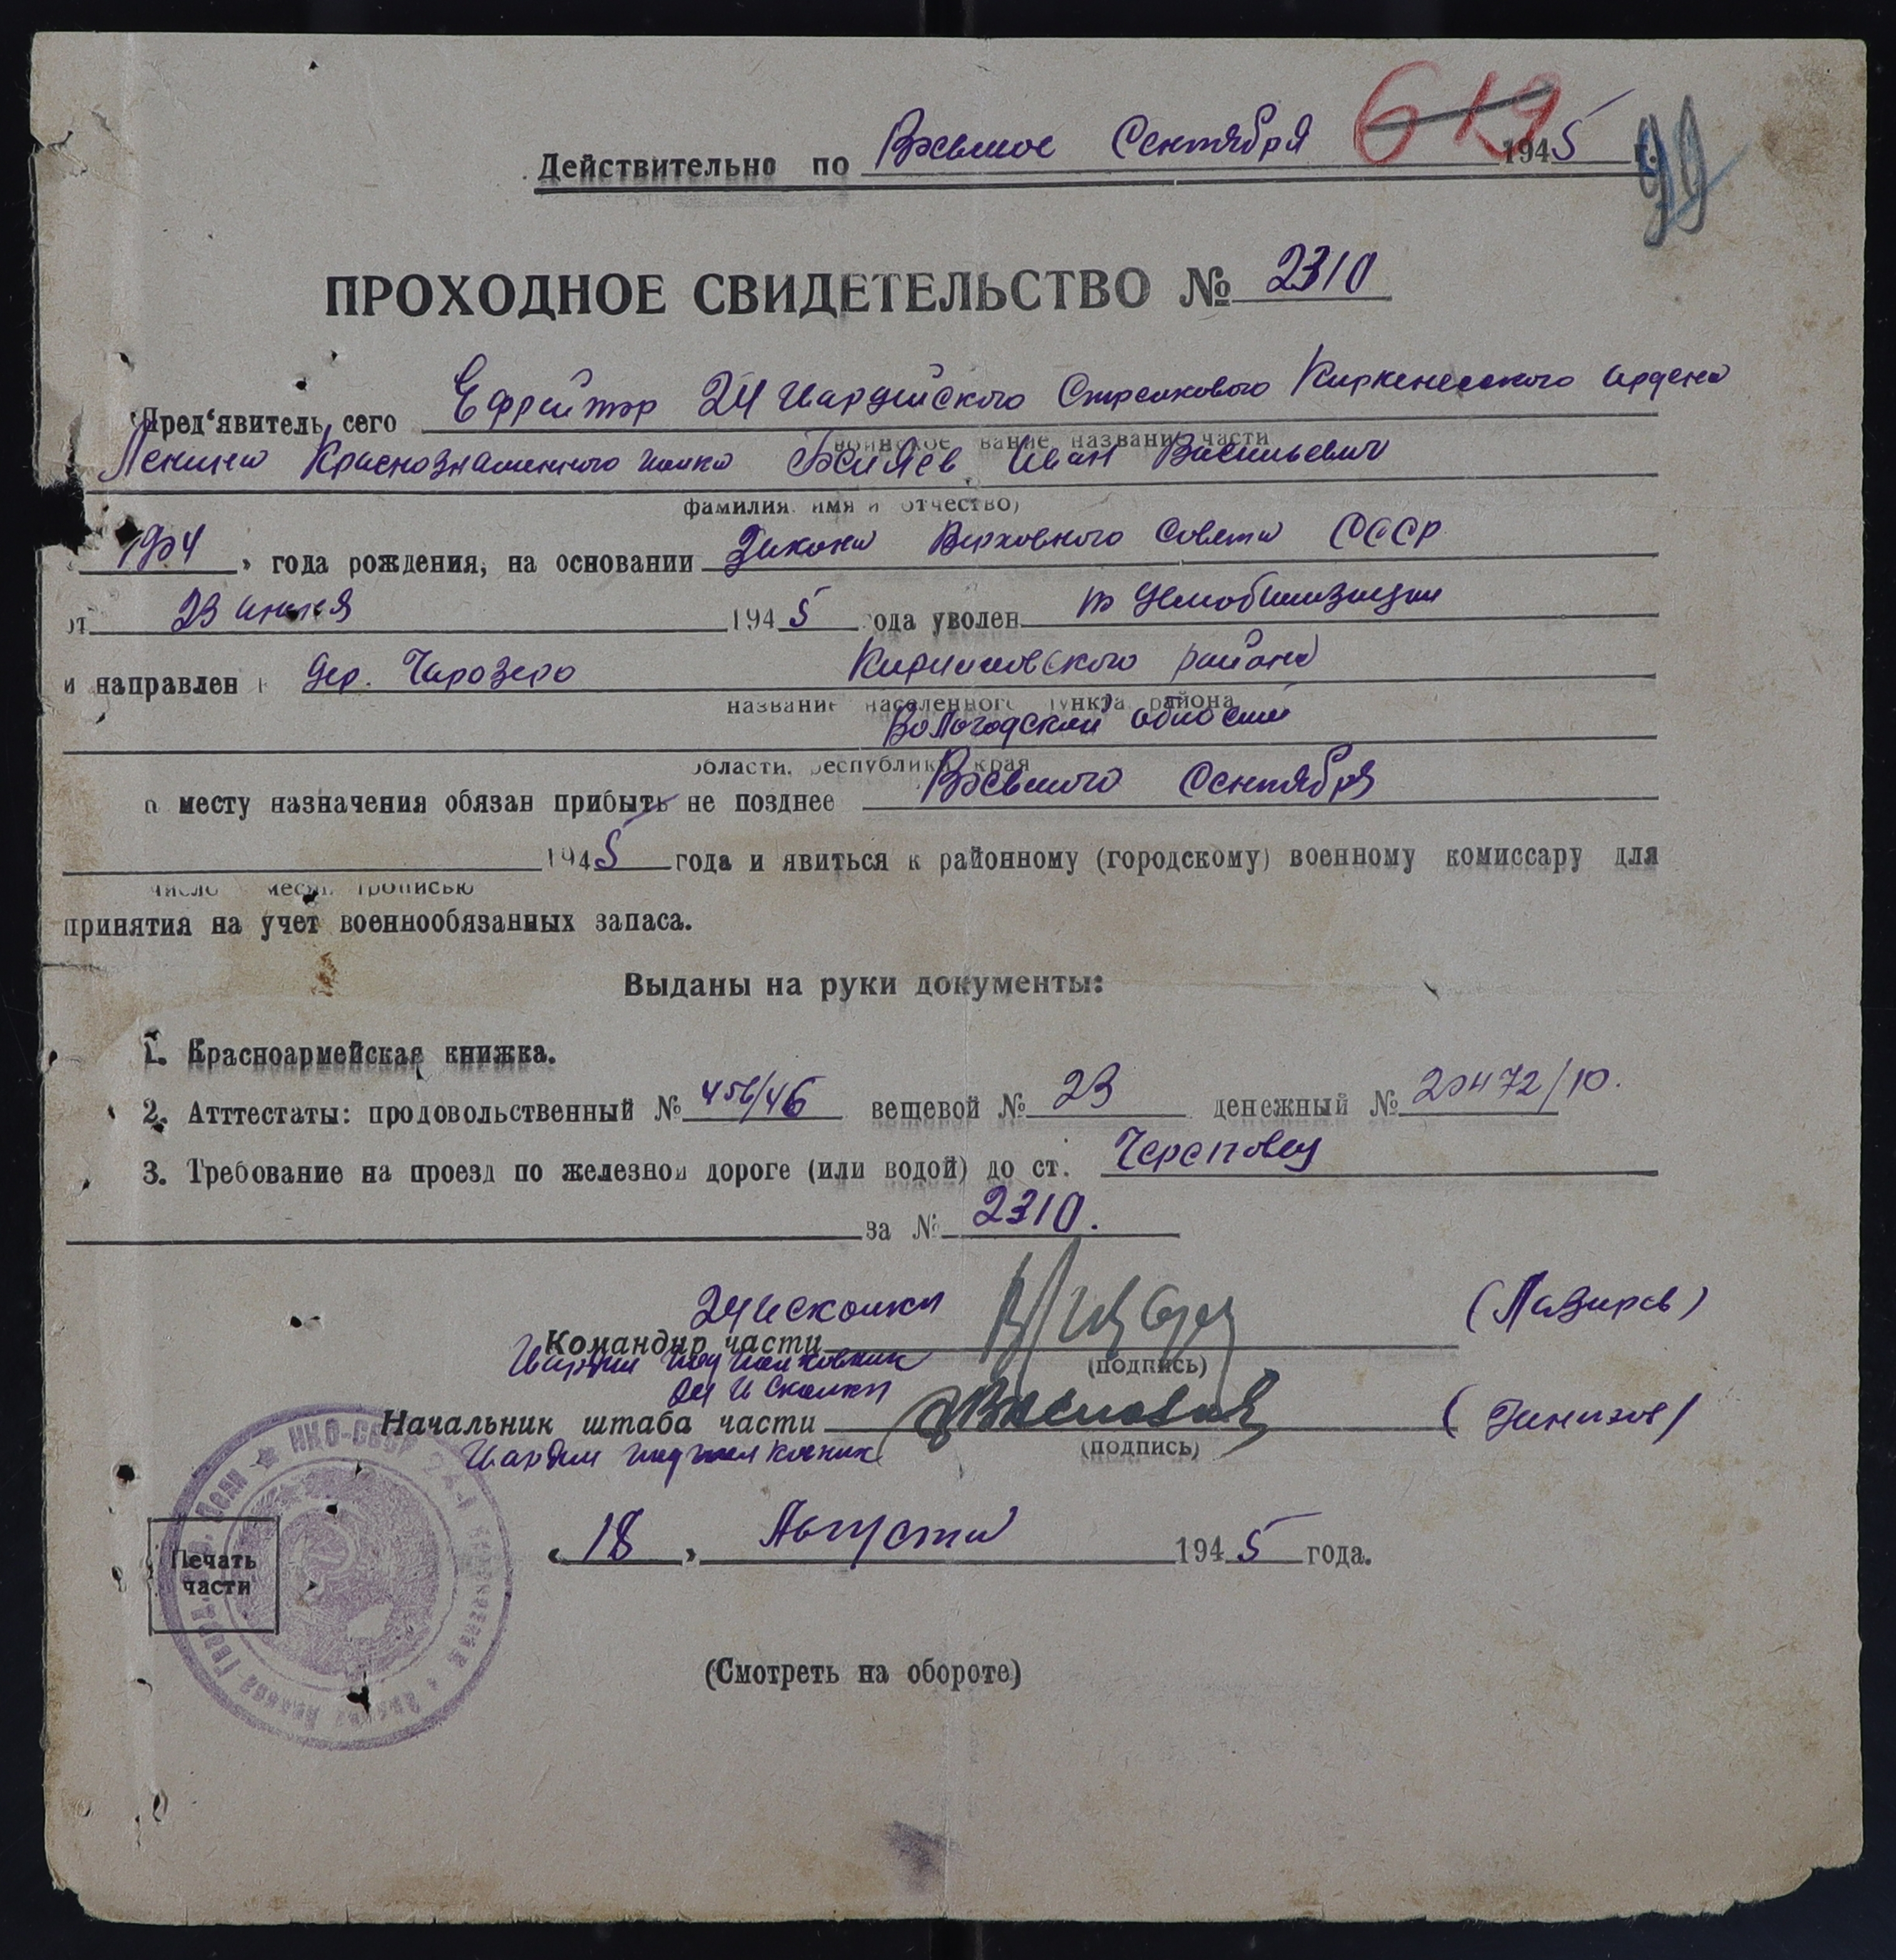 619
Действительно по Восьмое Сентября 1945 г.
99
ПРОХОДНОЕ СВИДЕТЕЛЬСТВО № 2310
Пред‘явитель сего Ефрейтор 24 Гвардейского Стрелкового Киркенесского Ордена
воинское звание название части
Ленина Краснознаменного полка Беляев Иван Васильевич
фамилия имя и отчество)
года рождения, на основании Закона Верховного Совета СССР
от 23 июня 1945 года уволен по демобилизации
и направлен в дер. Чарозеро Кирилловского района
название населенного пункта района
Вологодской области
области, республики края
к месту назначения обязан прибыть не позднее Восьмого Сентября
1945 года и явиться к районному (городскому) военному комиссару для
число месяц прописью
принятия на учет военнообязанных запаса.
Выданы на руки документы:
1. Красноармейская книжка.
2. Атттестаты: продовольственный № 456/46 вещевой № 23 денежный № 20472/10.
3. Требование на проезд по железной дороге (или водой) до ст. Череповец
за № 2310.
Командир части (Лазарев)
Гвардии подполковник (подпись)
Начальник штаба части
Гвардии подполковник (подпись)
НКО-СССР
Печать
части
„18„ Августа 1945 года.
(Смотреть на обороте)